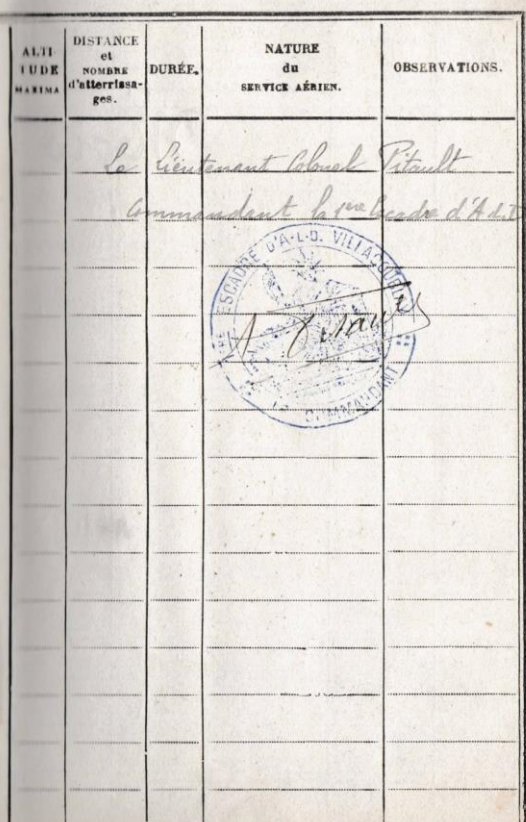 ALTI-
TUDE
MAXIMA
DISTANCE
et
NOMBRE
d'atterrissa-
ges.
DURÉE.
NATURE
du
SERVICE AÉRIEN.
OBSERVATIONS.
Le Lieutenant Colonel Pitault
Commandant la 1ère Escadre d'A.L.D
1RE ESCADRE D'A-L-D. VILLACOUBLAY
LE COMMANDANT
A Pitault